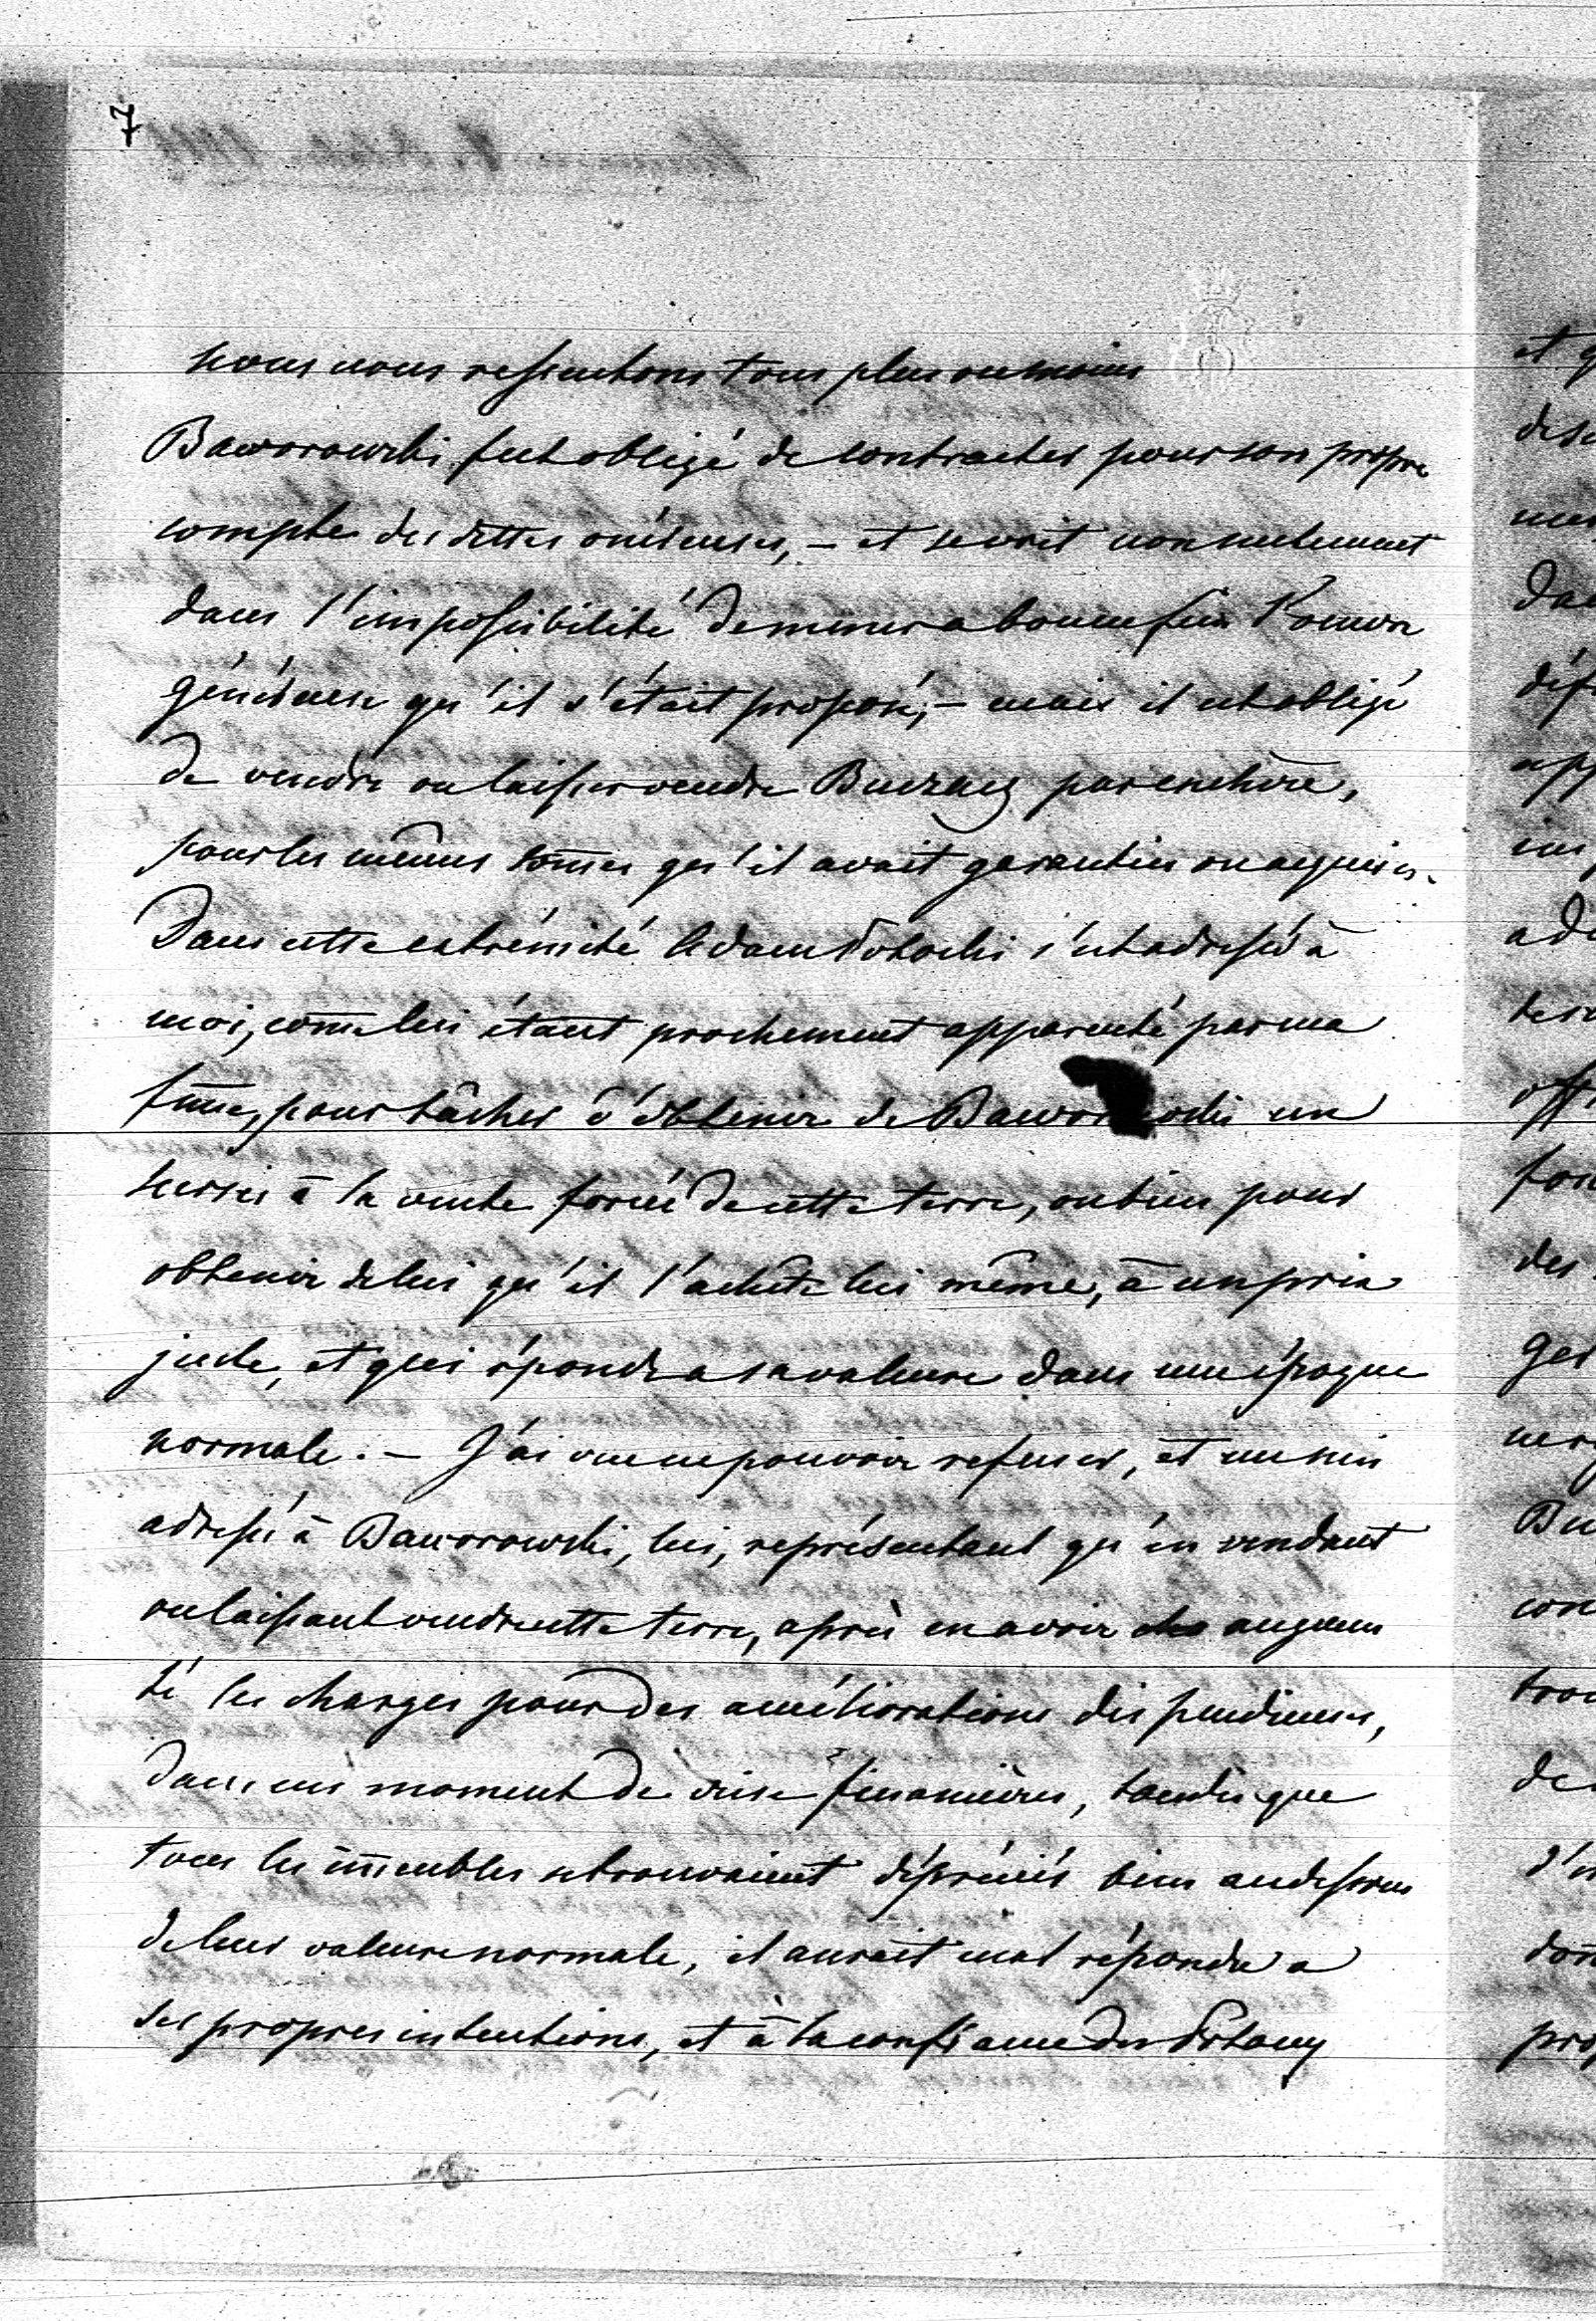 7
nous nous ressentons tous plus ou moins
Baworowski fut obligé de contracter pour son propre
compte des dettes onéreuses, – et se voit non seulement
dans l'impossibilité de mener a bonne fin l'œuvre
généreuse qu'il s'était proposé, – mais il est obligé
de vendre ou laisser vendre par enchère,
pour les mêmes som̅es qu'il avait garanties ou acquises.
Dans cette extrémité Adam Potocki s'est adressé à
moi, com̅e lui étant prochement apparenté par ma
fem̅e, pour tâcher d'obtenir de Baworowski un
sursis à la vente forcée de cette terre, ou bien pour
obtenir de lui qu'il l'achète lui même, à un prix
juste, et qui réponde a sa valeure dans une époque
normale. – J'ai cru ne pouvoir refuser, et me suis
adressé à Baworowski, lui, représentant qu'en vendant
ou laissant vendre cette terre, après en avoir augmen
té les charges pour des améliorations dispendieuses,
dans un moment de crise financière, tandis que
tous les im̅eubles se trouvaient dépréciés bien au dessous
de leur valeure normale, il aurait mal répondu a
ses propres intentions, et à la confiance des Potocky
et